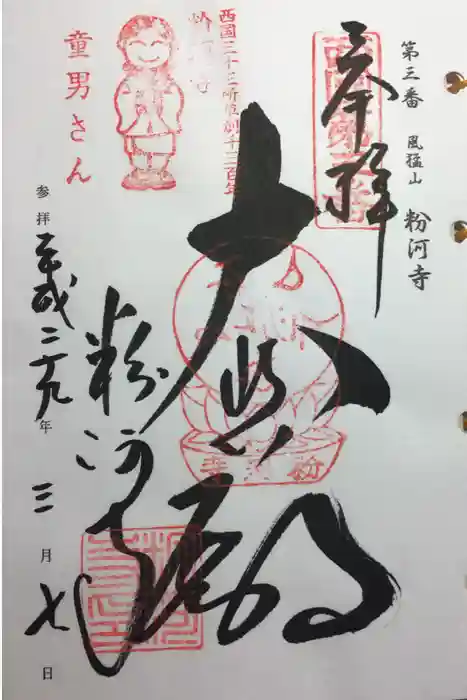 第三番 風猛山 粉河寺
奉拝
西国三十三所草創千三百年
粉河寺
大悲殿
粉河寺
童男さん
参拝 平成二十九年 三月 七日